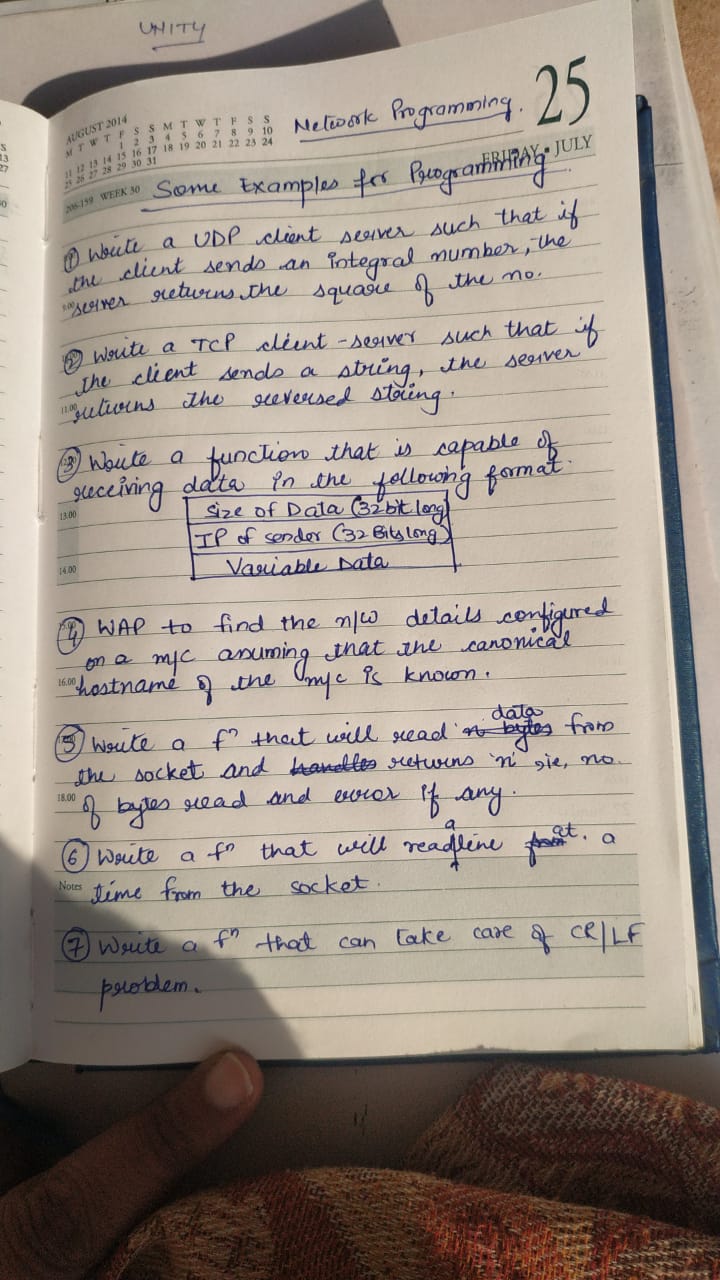 UNITY
AUGUST 2014
M T W T F S S M T W T F S S
1 2 3 4 5 6 7 8 9 10
11 12 13 14 15 16 17 18 19 20 21 22 23 24
25 26 27 28 29 30 31
Network Programming.
25
FRIDAY • JULY
206-159 WEEK 30
Some Examples for Programming
① Write a UDP client server such that if
the client sends an integral number, the
9.00 server returns the square of the no.
② Write a TCP client-server such that if
the client sends a string, the server
11.00 returns the reversed string.
③ Write a function that is capable of
receiving data in the following format.
13.00
Size of Data (32 bit long)
IP of sender (32 Bits long)
14.00
Variable Data
④ WAP to find the n/w details configured
on a m/c assuming that the canonical
16.00 hostname of the m/c is known.
data
⑤ Write a fⁿ that will read n bytes from
the socket and handles returns 'n' ie, no.
18.00 of bytes read and error if any.
a
⑥ Write a fⁿ that will read line at. a
Notes time from the socket.
⑦ Write a fⁿ that can take care of CR/LF
problem.